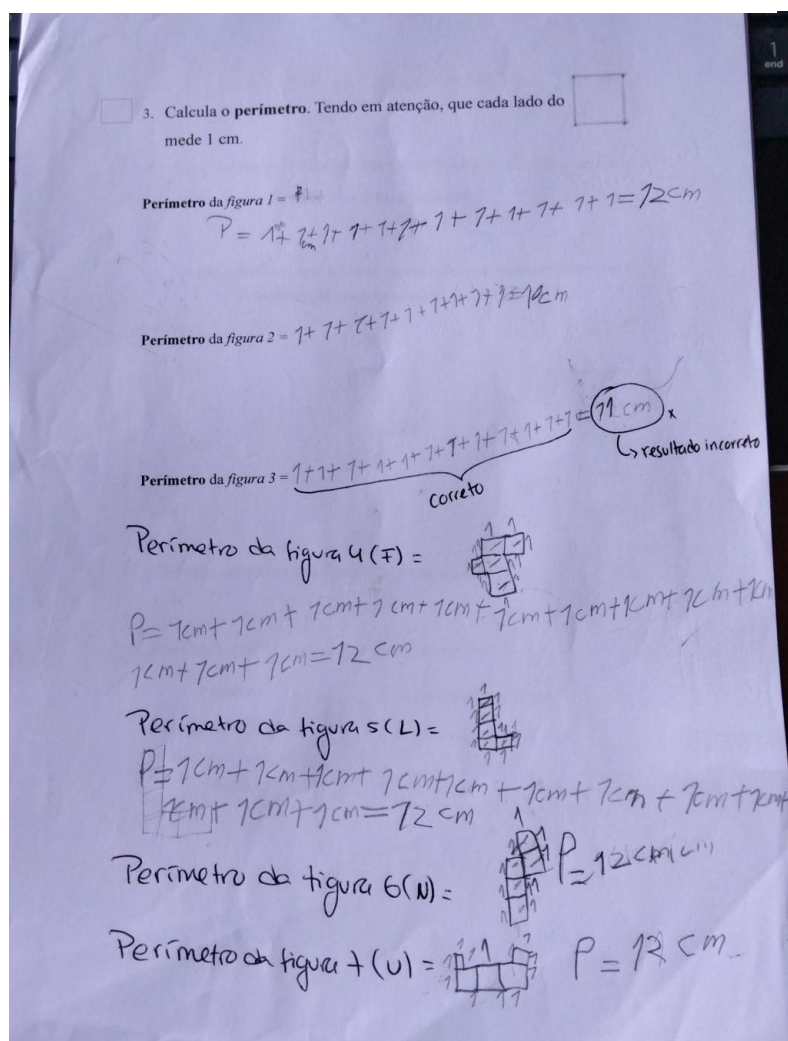 1
end
3. Calcula o perímetro. Tendo em atenção, que cada lado do
mede 1 cm.
Perímetro da figura 1 =
P = 1+ 1+ 1+ 1+ 1+1+ 1+ 1+ 1+ 1+ 1+ 1= 12cm
cm
Perímetro da figura 2 = 1+ 1+ 1+1+1+1+1+1+1+1=10cm
Perímetro da figura 3 = 1+1+1+1+1+1+1+1+1+1+1+1=11 cm x
correto
resultado incorreto
Perímetro da figura 4 (F) =
P= 1cm+1cm+ 1cm+1cm+1cm+1cm+1cm+1cm+1cm+1cm
1cm+1cm+1cm=12 cm
Perímetro da figura 5 (L) =
P=1cm+1cm+1cm+ 1cm+1cm+1cm+1cm+1cm+1cm+
1cm+1cm+1cm=12 cm
Perímetro da figura 6(N) =
P=12cm
Perímetro da figura 7 (U) =
P = 12 cm